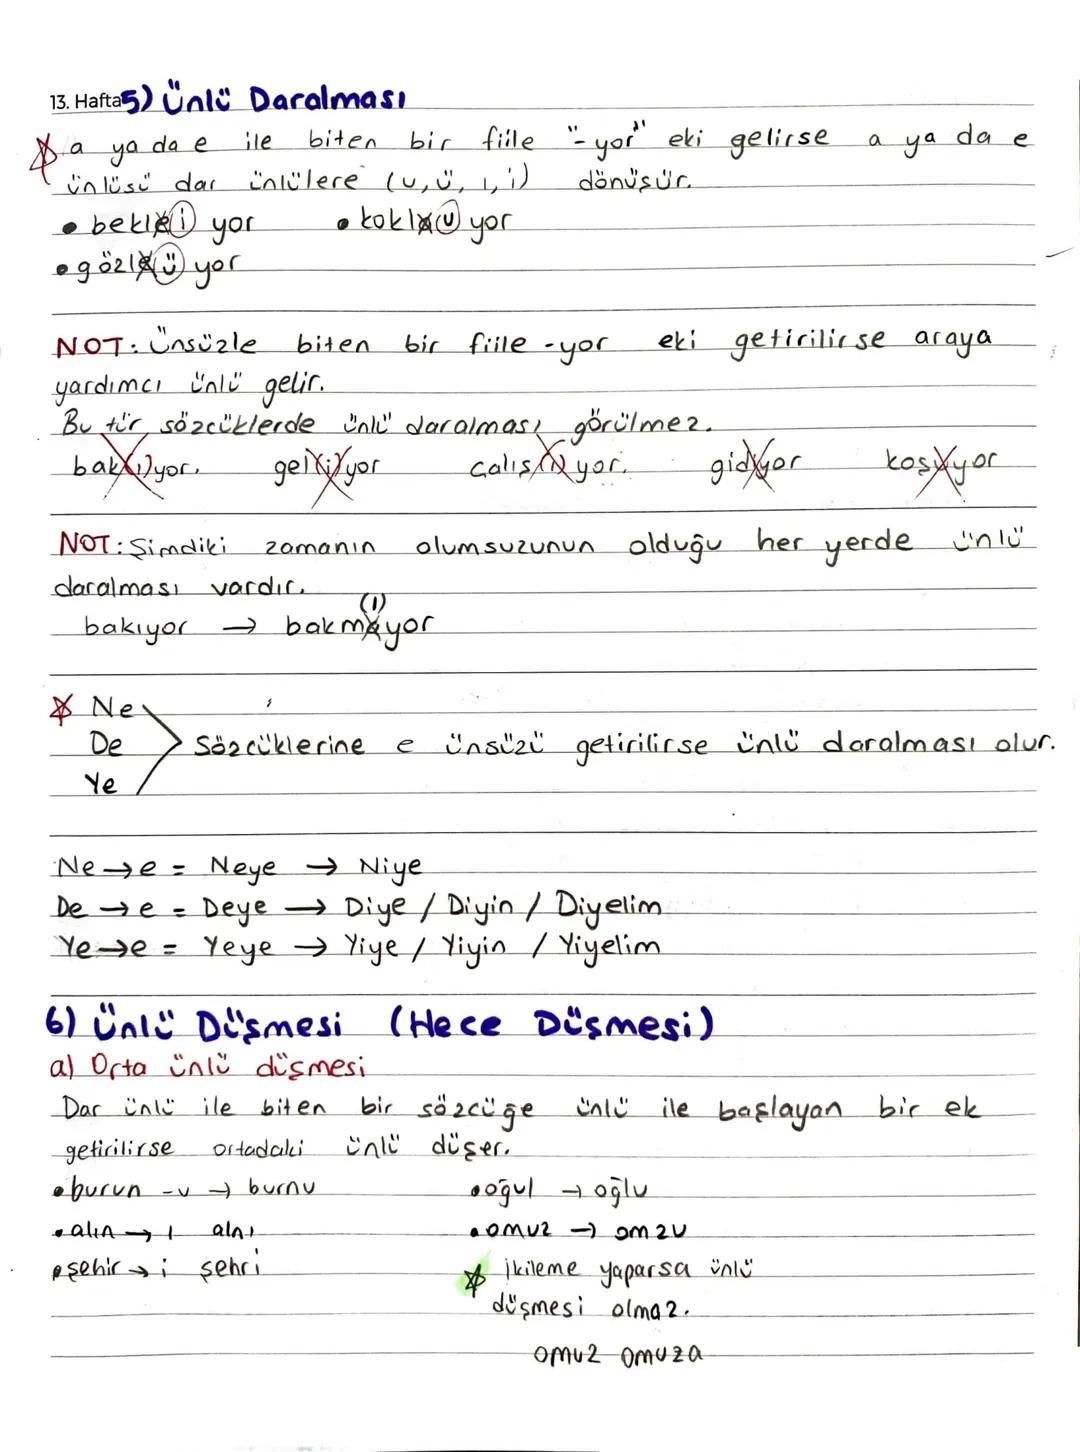 13. Hafta 5) Ünlü Daralması
a ya da e ile biten bir fiile "-yor" eki gelirse a ya da e
ünlüsü dar ünlülere (u, ü, ı, i) dönüşür.
• bekle(i) yor • kokla(u) yor
• gözle(ü) yor
NOT: Ünsüzle biten bir fiile -yor eki getirilirse araya
yardımcı ünlü gelir.
Bu tür sözcüklerde ünlü daralması görülmez.
bak(ı)yor. gel(i)yor çalış(ı)yor. gidiyor koşuyor
NOT: Şimdiki zamanın olumsuzunun olduğu her yerde ünlü
daralması vardır.
(ı)
bakıyor → bakmayor
Ne
De Sözcüklerine e ünsüzü getirilirse ünlü daralması olur.
Ye
Ne → e = Neye → Niye
De → e = Deye → Diye / Diyin / Diyelim
Ye → e = Yeye → Yiye / Yiyin / Yiyelim
6) Ünlü Düşmesi (Hece Düşmesi)
a) Orta ünlü düşmesi
Dar ünlü ile biten bir sözcüğe ünlü ile başlayan bir ek
getirilirse ortadaki ünlü düşer.
• burun -u → burnu • oğul → oğlu
• alın → ı alnı • omuz → omzu
• şehir → i şehri İkileme yaparsa ünlü
düşmesi olmaz.
omuz omuza